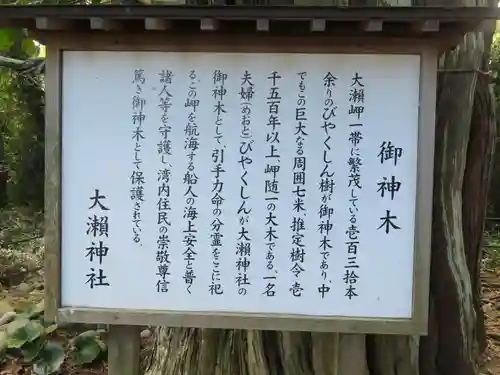 御神木
大瀬岬一帯に繁茂している壱百三拾本
余りのびやくしん樹が御神木であり、中
でもこの巨大なる周囲七米、推定樹令壱
千五百年以上、岬随一の大木である、一名
夫婦(めおと)びやくしんが大瀬神社の
御神木として、引手力命の分霊をここに祀
るこの岬を航海する船人の海上安全と普く
諸人等を守護し、湾内住民の崇敬尊信
篤き御神木として保護されている。
大瀬神社